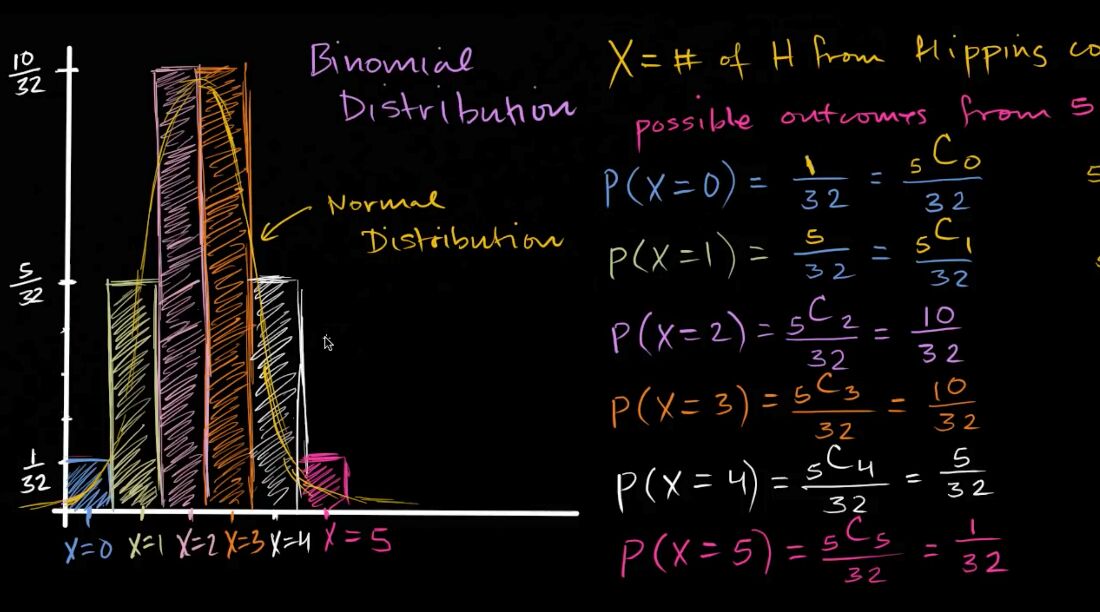 10/32
5/32
1/32
Binomial
Distribution
Normal
Distribution
X=0 X=1 X=2 X=3 X=4 X=5
X = # of H from flipping co
possible outcomes from 5
P(X=0) = 1/32 = ₅C₀/32
P(X=1) = 5/32 = ₅C₁/32
P(X=2) = ₅C₂/32 = 10/32
P(X=3) = ₅C₃/32 = 10/32
P(X=4) = ₅C₄/32 = 5/32
P(X=5) = ₅C₅/32 = 1/32